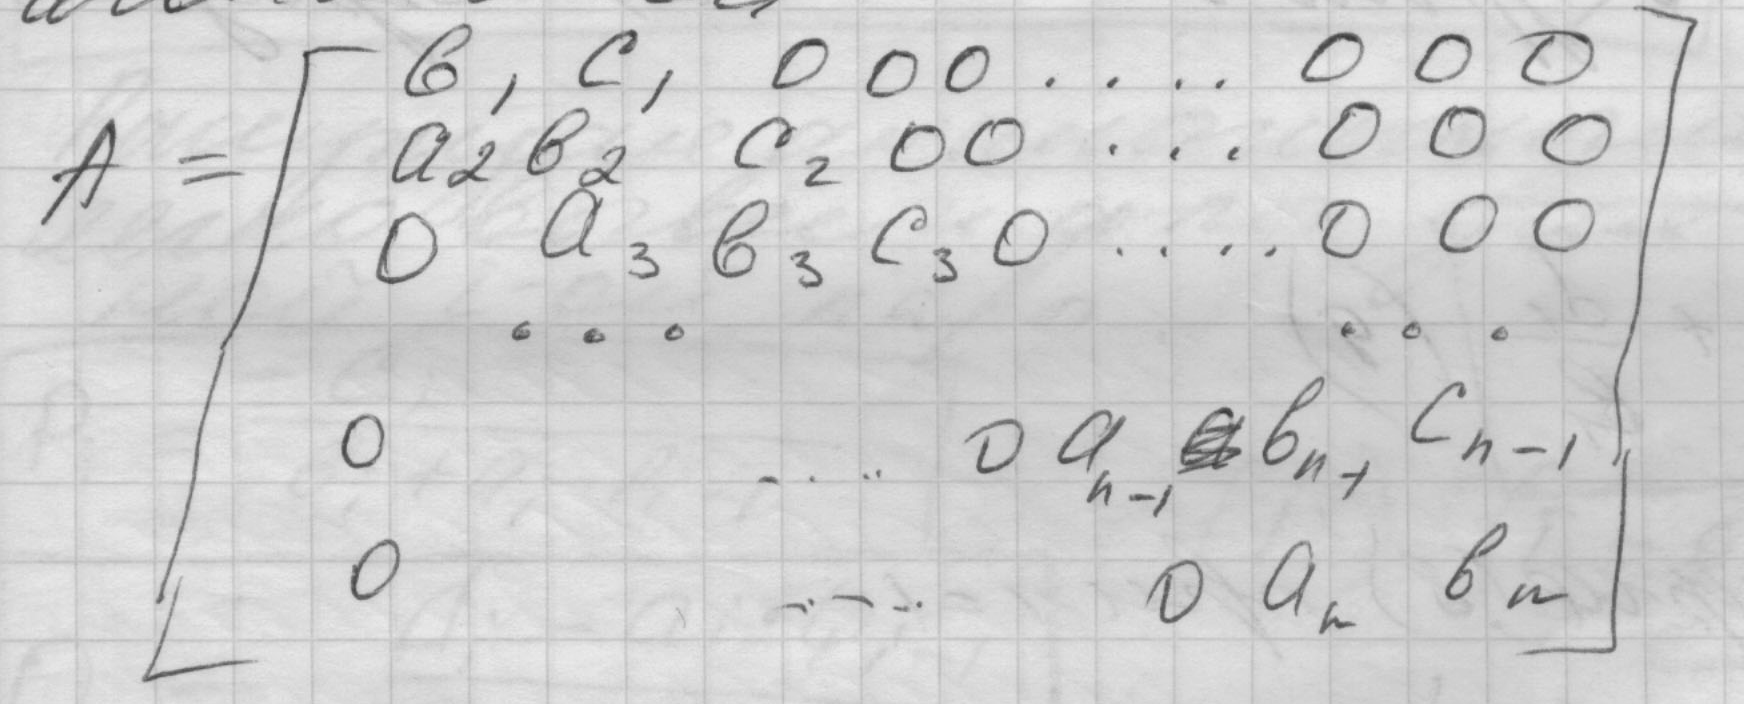 A = [ b₁ c₁ 0 0 0 . . . . . 0 0 0 ]
a₂ b₂ c₂ 0 0 . . . 0 0 0
0 a₃ b₃ c₃ 0 . . . . . 0 0 0
. . . . . .
0 . . . . 0 aₙ₋₁ bₙ₋₁ cₙ₋₁
0 . . . . 0 aₙ bₙ